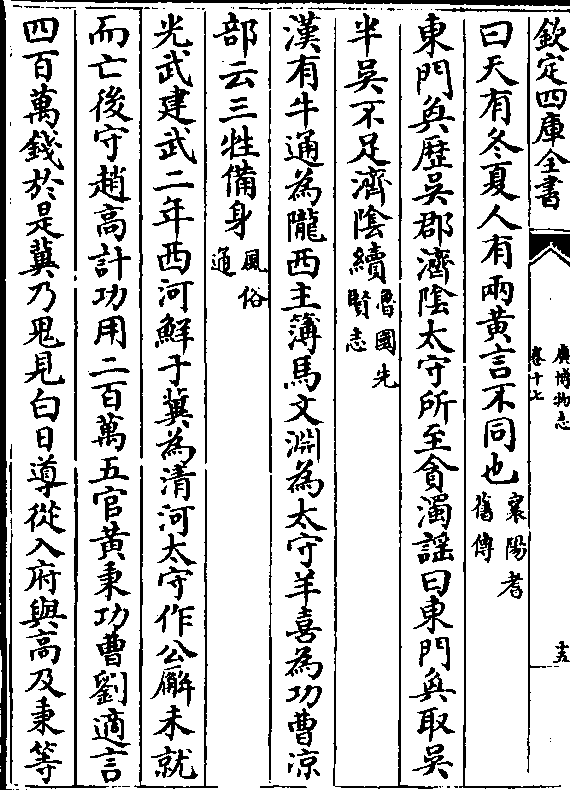 欽定四庫全書
廣博物志
卷十七
十五
曰天有冬夏人有兩黄言不同也襄陽耆舊傳
東門奐歴吳郡濟陰太守所至貪濁謡曰東門奐取吳
半吳不足濟陰續魯國先賢志
漢有牛通為隴西主簿馬文淵為太守羊喜為功曹涼
部云三牲備身風俗通
光武建武二年西河鮮于冀為清河太守作公廨未就
而亡後守趙高計功用二百萬五官黄秉功曹劉適言
四百萬錢於是冀乃鬼見白日導從入府與高及秉等